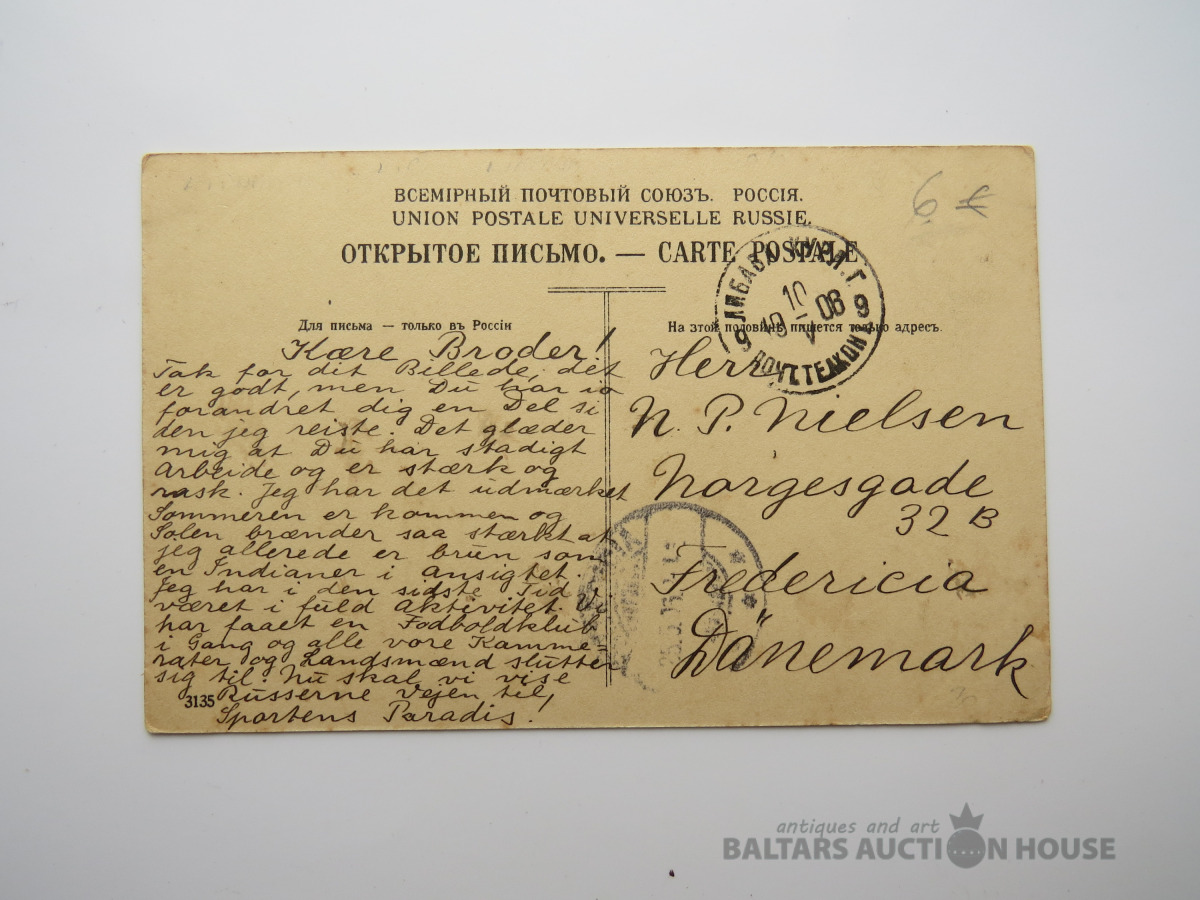 ВСЕМІРНЫЙ ПОЧТОВЫЙ СОЮЗЪ. РОССІЯ.
UNION POSTALE UNIVERSELLE RUSSIE.
ОТКРЫТОЕ ПИСЬМО. — CARTE POSTALE
6 €
ЛИБАВА КУРЛ. Г.
10
19 V 08
9 9
ПОЧТ ТЕЛ КОН
Для письма — только въ Россіи
Kære Broder!
Tak for dit Billede, det
er godt, men Du har jo
forandret dig en Del si
den jeg reiste. Det glæder
mig at Du har stadigt
Arbeide og er stærk og
rask. Jeg har det udmærket
Sommeren er kommen og
Solen brænder saa stærkt at
jeg allerede er brun som
en Indianer i ansigtet.
Jeg har i den sidste Tid
været i fuld Aktivitet. Vi
har faaet en Fodboldklub
i Gang og alle vore Kamme-
rater og Landsmænd slutter
sig til. Nu skal vi vise
Russerne Vejen til
Sportens Paradis.
3135
На этой половинѣ пишется только адресъ.
Herr
N. P. Nielsen
Norgesgade
32 B
Fredericia
Dänemark
antiques and art
BALTARS AUCTION HOUSE